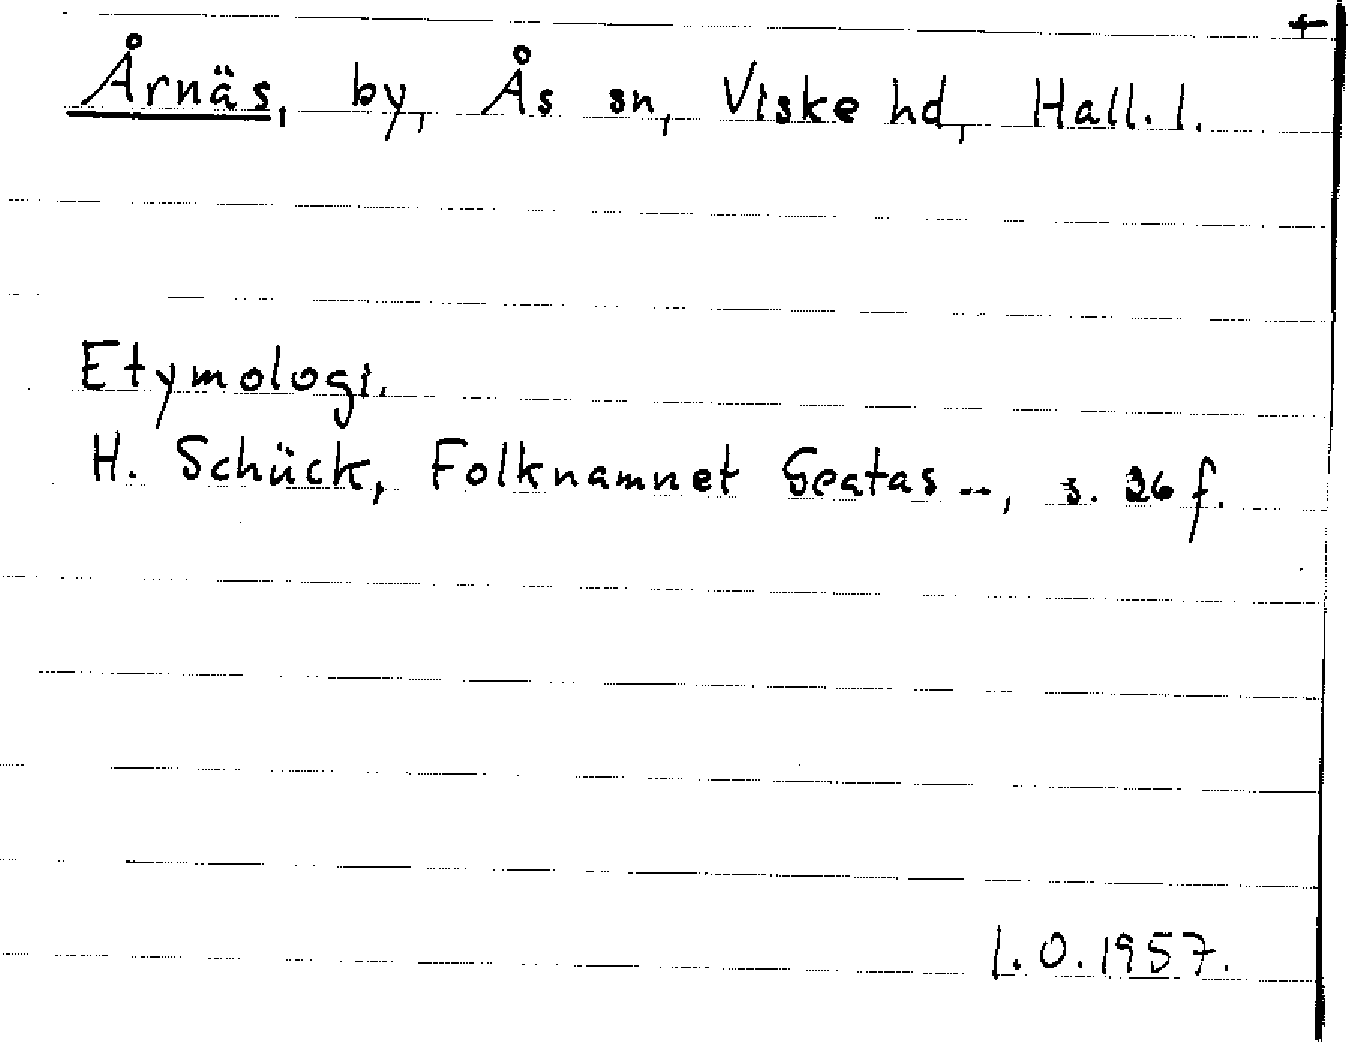 Årnäs, by, Ås sn, Viske hd, Hall. l.
Etymologi.
H. Schück, Folknamnet Geatas --, s. 26 f.
I.O. 1957.